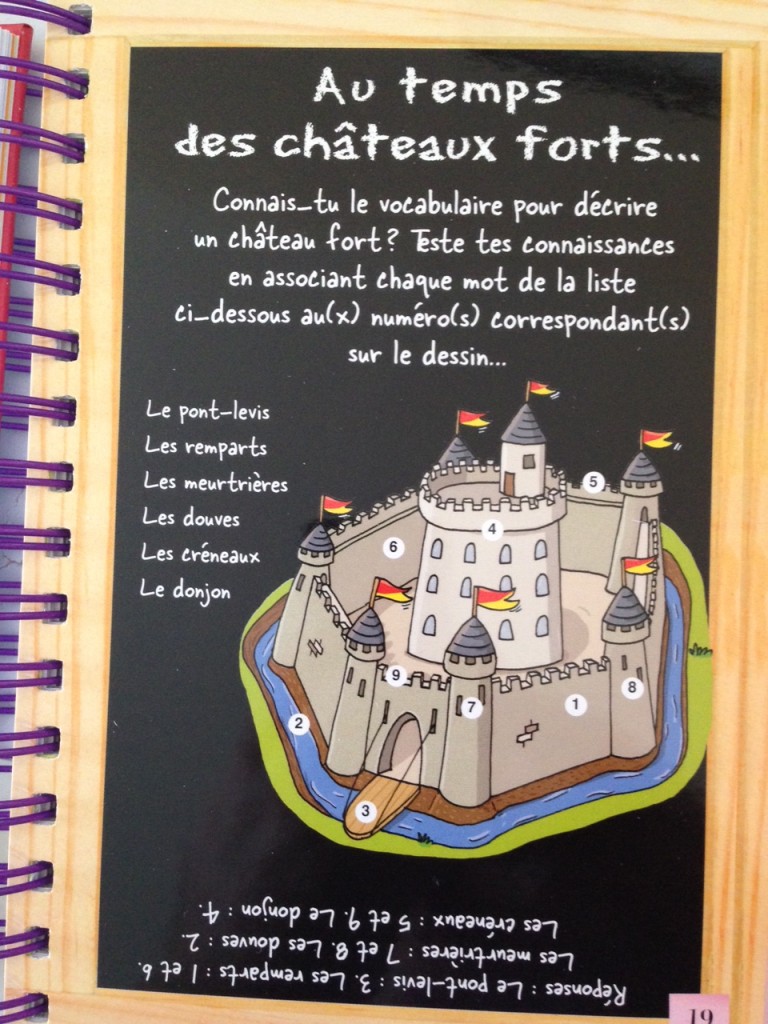 Au temps
des châteaux forts...
Connais-tu le vocabulaire pour décrire
un château fort ? Teste tes connaissances
en associant chaque mot de la liste
ci-dessous au(x) numéro(s) correspondant(s)
sur le dessin...
Le pont-levis
Les remparts
Les meurtrières
Les douves
Les créneaux
Le donjon
5
4
6
9
8
7
1
2
3
Réponses : Le pont-levis : 3. Les remparts : 1 et 6.
Les meurtrières : 7 et 8. Les douves : 2.
Les créneaux : 5 et 9. Le donjon : 4.
19